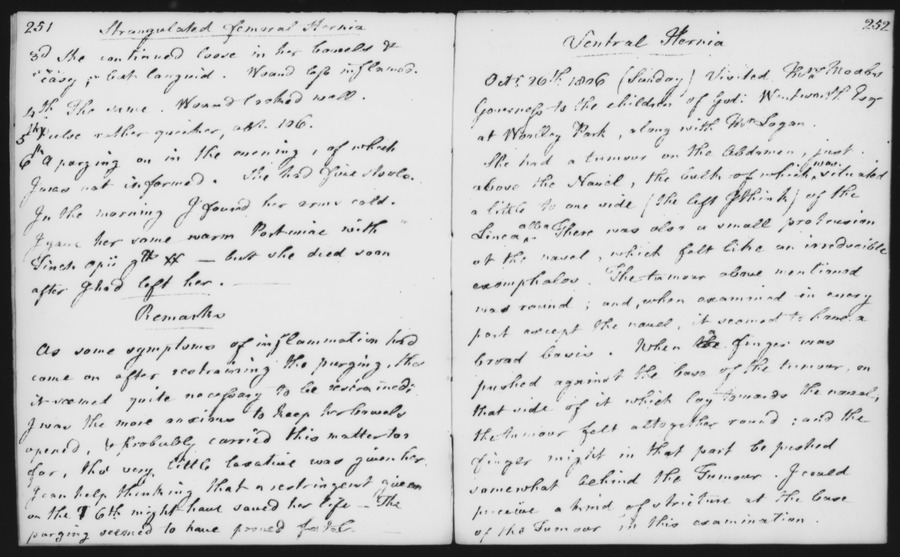 251 Strangulated femoral Hernia
3d She continued loose in her bowels &
easy; but languid. Wound less inflamed.
4th The same. Wound looked well.
5th Pulse rather quicker, abt. 106.
6th A purging on in the evening, of which
I was not informed. She had five stools.
In the morning I found her arms cold.
I gave her some warm Port wine with
Tinct. opii gtt XX — but she died soon
after I had left her.
Remarks
As some symptoms of inflammation had
come on after restraining the purging, tho'
it seemed quite necessary to be restrained;
I was the more anxious to keep her bowels
opened, & probably carried this matter too
far, tho' very little laxative was given her.
I can help thinking that a restringent given
on the 6th might have saved her life — The
purging seemed to have proved fatal.
252
Ventral Hernia
Octr. 26th. 1806 (Sunday) Visited
Governess to the children of God: Wentworth Esqr
at Wortley Park, along with Mr Logan.
She had a tumour on the Abdomen, just
above the Navel, the bulk of which was situated
a little to one side (the left I think) of the
Linea alba. There was also a small protrusion
at the navel, which felt like an irreducible
exomphalos. The tumour above mentioned
was round; and, when examined in every
part except the navel, it seemed to have a
broad basis. When the finger was
pushed against the base of the tumour, on
that side of it which lay towards the navel,
the tumour felt altogether round; and the
finger might in that part be pushed
somewhat behind the Tumour. I could
perceive a kind of stricture at the base
of the Tumour in this examination.